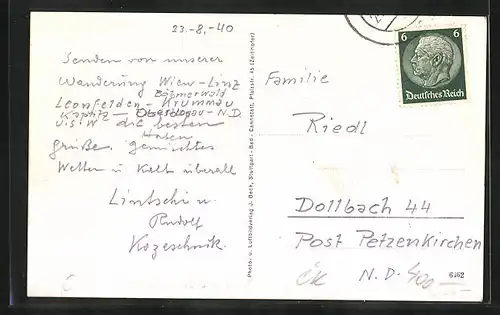 23.-8.-40
Senden von unserer
Wanderung Wien-Linz
Böhmerwald
Leonfelden-Krummau
Kaplitz - Oberdonau-N.D.
u.s.w. die besten
grüße. gemischtes
Wetter u Kalt überall
Lintschi u.
Rudolf
Kozeschnik.
Photo- u. Luftbildverlag J. Beck, Stuttgart-Bad Cannstatt, Pfalzstr. 45 (Zeichnofer)
6 6
Deutsches Reich
Familie
Riedl
Dollbach 44
Post Petzenkirchen
N.D.
čk 400
6162